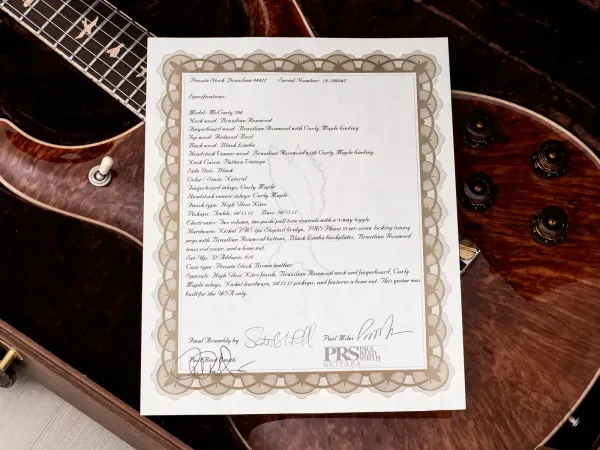 Private Stock Brazilian Serial Number:
Specifications:
Model: McCarty 594
Neck wood: Brazilian Rosewood
Fingerboard wood: Brazilian Rosewood with Curly Maple binding
Top wood: Redwood Burl
Back wood: Black Limba
Headstock Veneer wood: Brazilian Rosewood with Curly Maple binding
Neck Carve: Pattern Vintage
Side Dots: Black
Color / Stain: Natural
Fingerboard inlays: Curly Maple
Headstock veneer inlay: Curly Maple
Finish type: High Gloss Nitro
Pickups: Treble: 58/15 LT Bass: 58/15 LT
Electronics: Two volume, two push/pull tone controls with a 3-way toggle
Hardware: Nickel PRS 2pc Stoptail bridge, PRS Phase II set-screw locking tuning
pegs with Brazilian Rosewood buttons, Black Limba backplates, Brazilian Rosewood
truss rod cover, and a bone nut.
Set-Up: D'Addario .010
Case type: Private Stock Brown leather
Specials: High Gloss Nitro finish, Brazilian Rosewood neck and fingerboard, Curly
Maple inlays, Nickel hardware, 58/15 LT pickups, and features a bone nut. This guitar was
built for the USA only.
Final Assembly by
Paul Miles
Paul Reed Smith
PRS PAUL REED SMITH
GUITARS